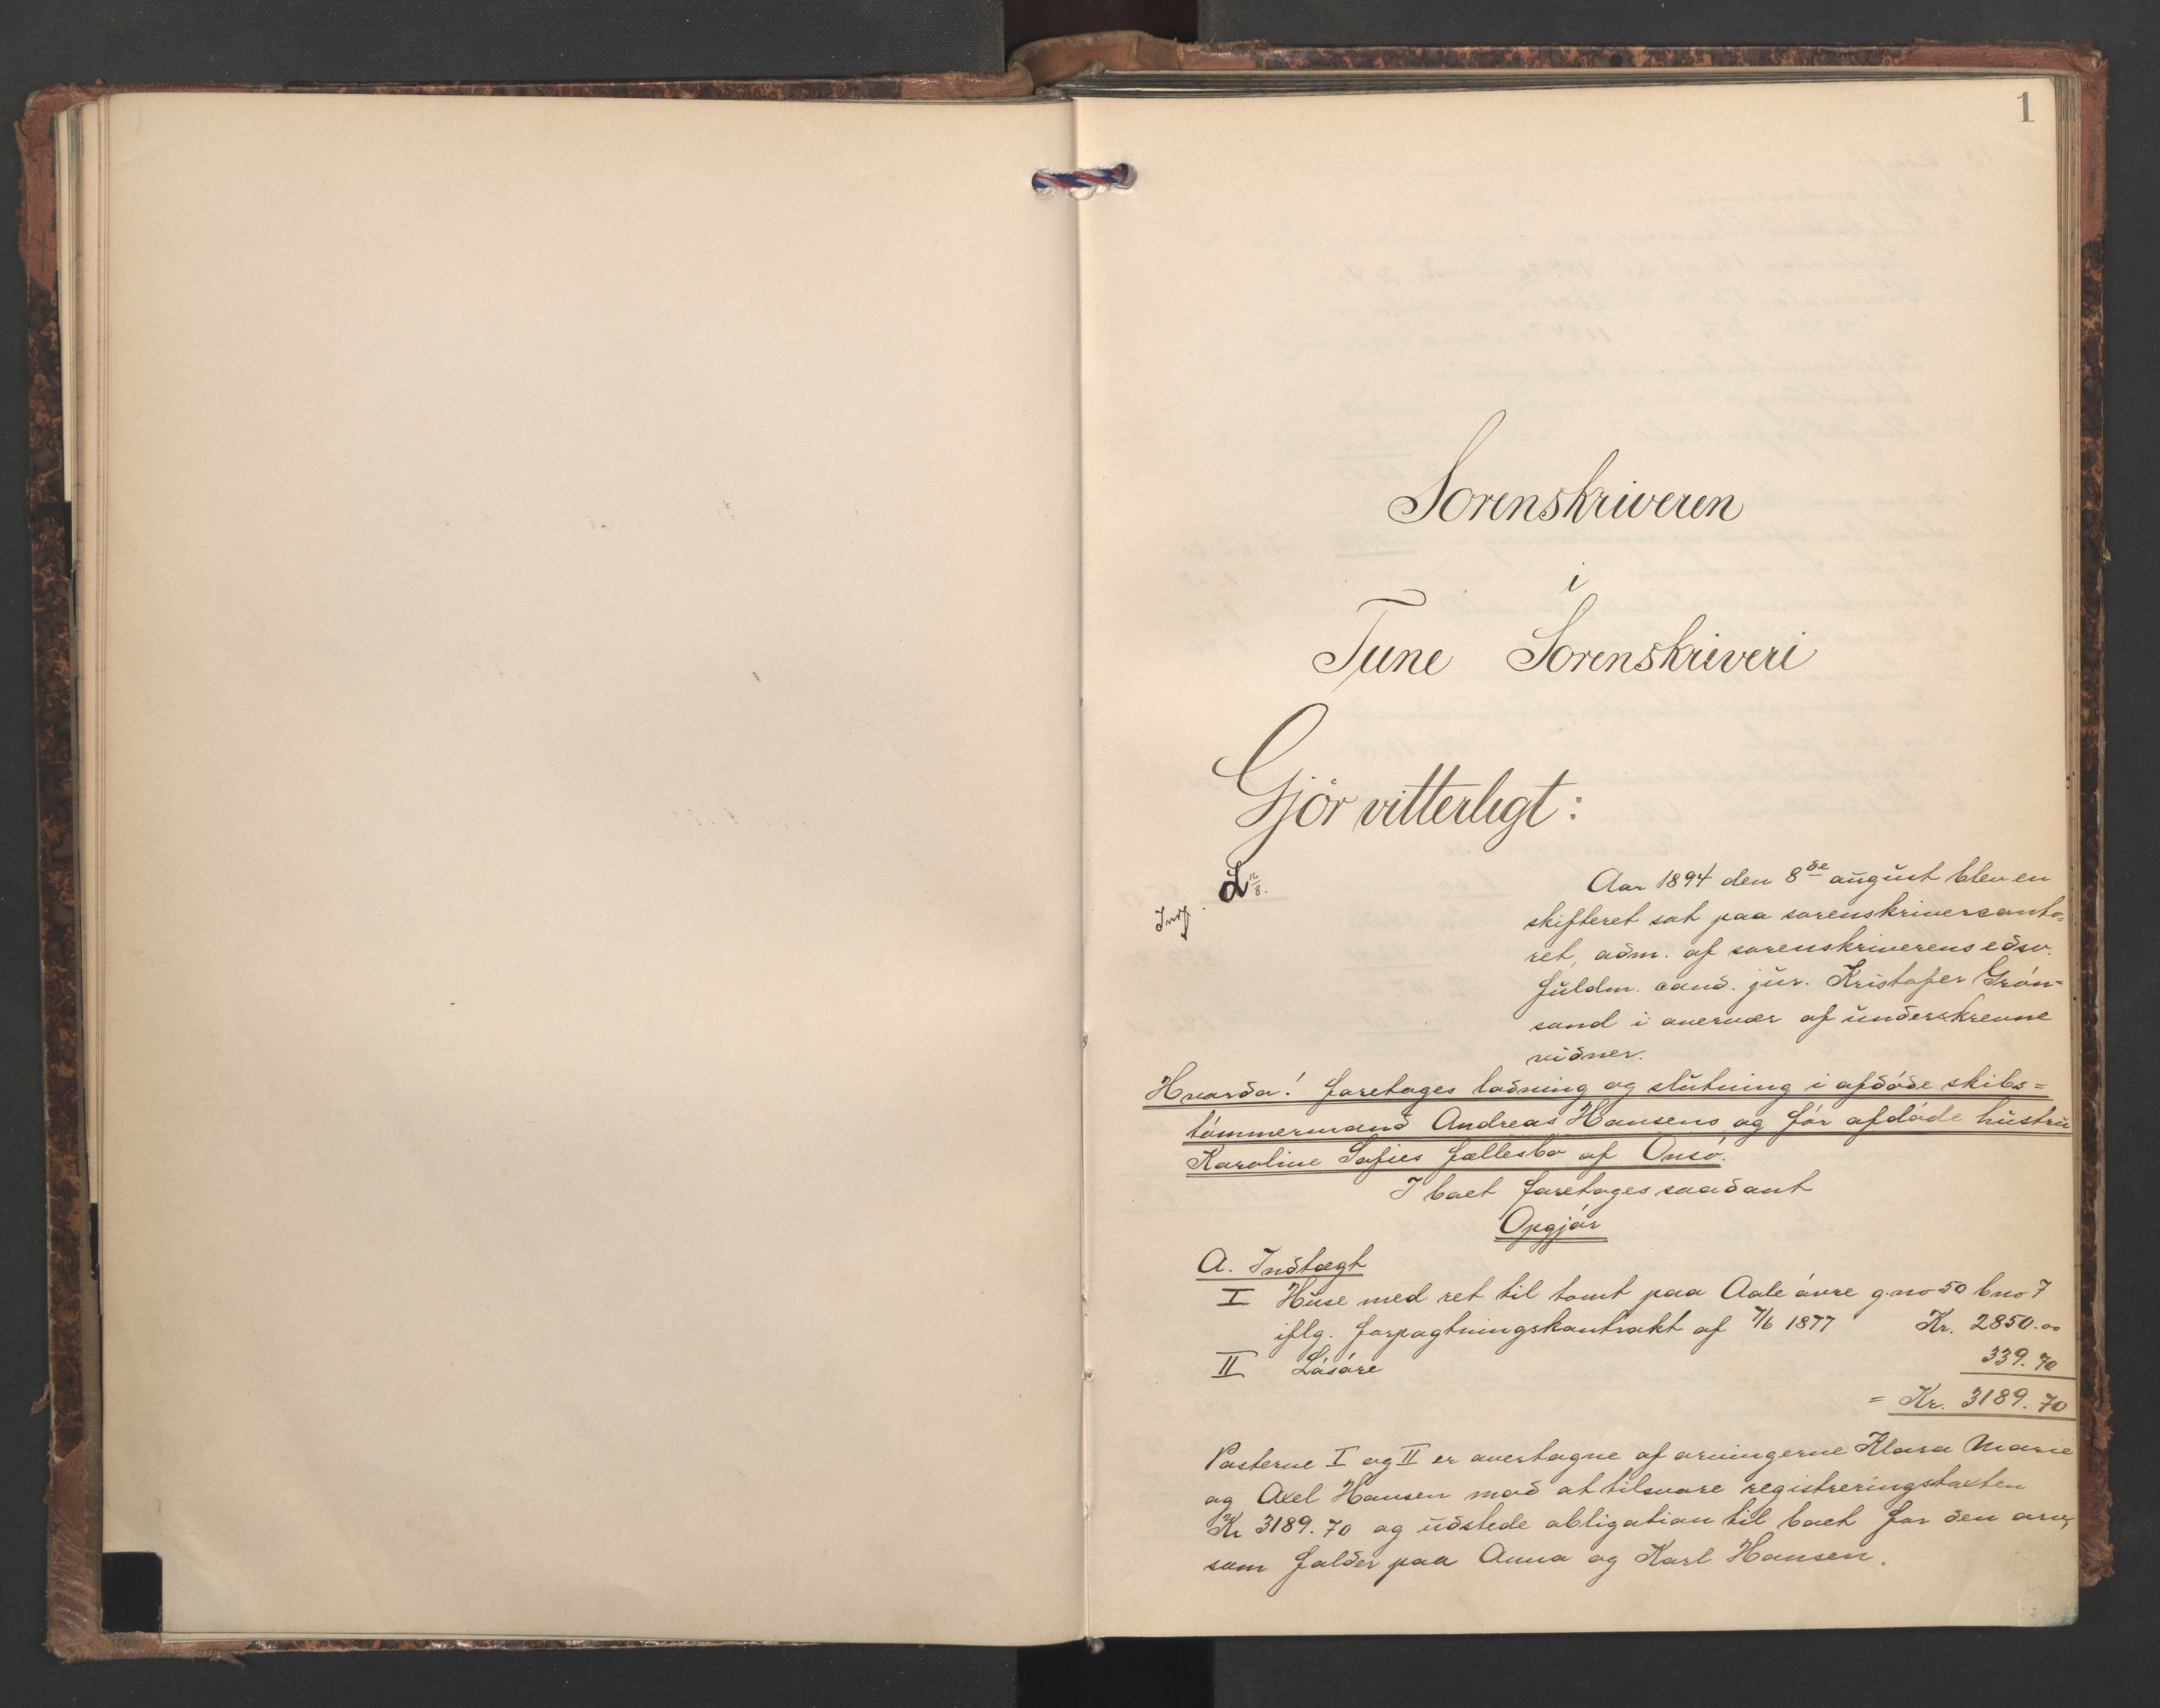 1
Sorenskriveren
i
Tune Sorenskriveri
Gjör vitterligt:
Aar 1894 den 8de august blev en
skifteret sat paa sorenskriverconto=
ret, adm. af sorenskriverens edsv.
fuldm. cand. jur. Kristofer Grön=
sand i overvær af underskrevne
vidner.
Hvorda! foretoges lodning og slutning i afdöde skibs=
tömmermand Andreas Hansens og för afdöde hustru
Karoline Sofies fællesbo af Onsö.
I boet foretoges saadant
Opgjör
A. Indtægt
I Huse med ret til tomt paa Aale övre g.no 50 b no 7
iflg. forpagtningskontrakt af 7/6 1877 Kr. 2850.00
II Lösöre 339.70
= Kr. 3189.70
Posterne I og II er overtagne af arvingerne Klara Marie
og Axel Hansen mod at tilsvare registreringstaxten
Kr 3189.70 og udstede obligation til boet for den arv,
som falder paa Anna og Karl Hansen.